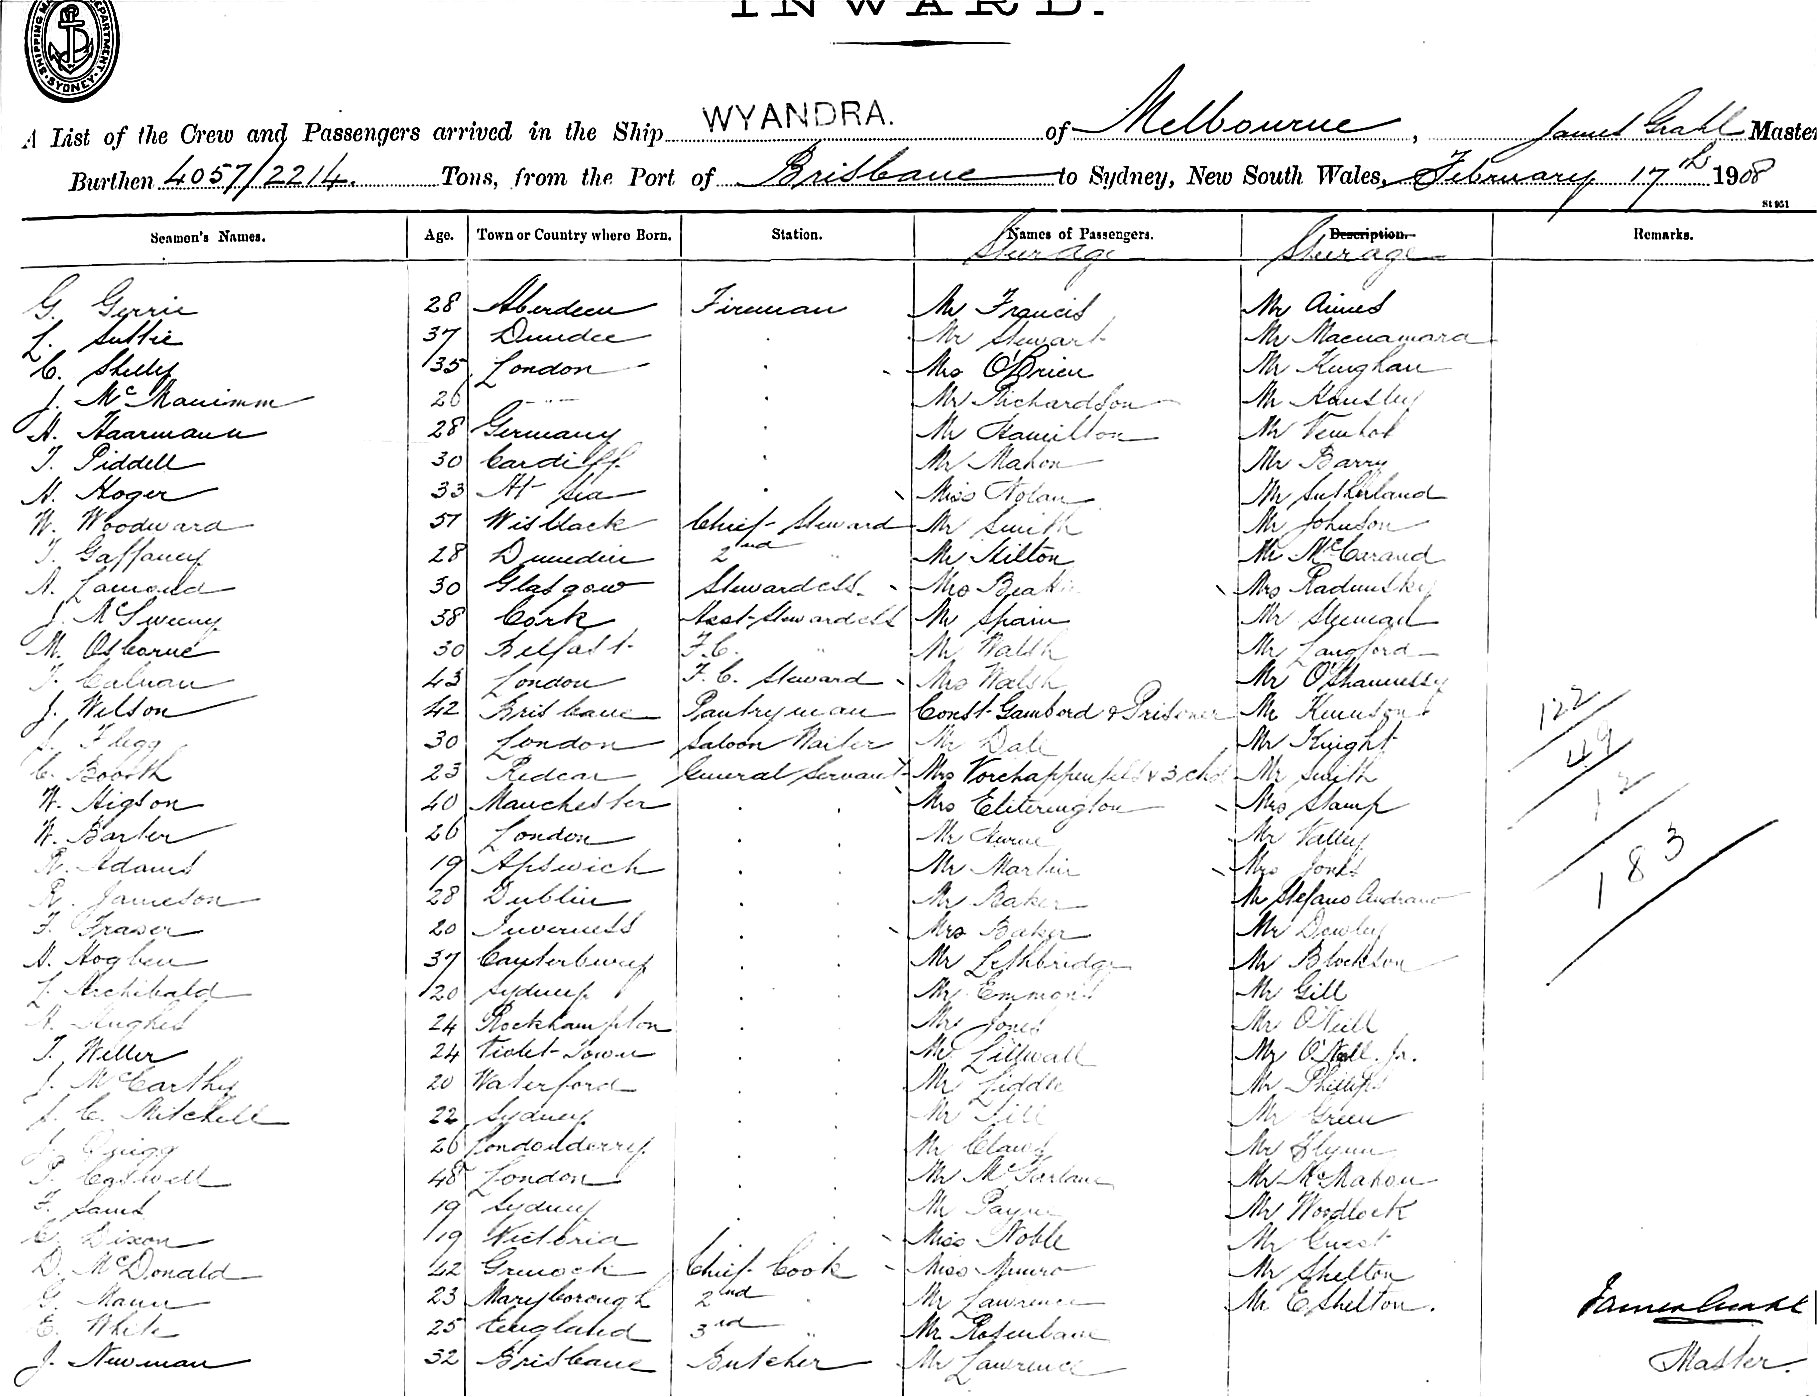 INWARD.
SHIPPING MA DEPARTMENT SYDNEY
A List of the Crew and Passengers arrived in the Ship WYANDRA. of Melbourne, James Grahl Master
Burthen 4057/2214. Tons, from the Port of Brisbane to Sydney, New South Wales, February 17th 1908
St 951
Seamen's Names. Age. Town or Country where Born. Station. Names of Passengers. Description. Remarks.
Steerage Steerage
G. Gerrie 28 Aberdeen Fireman Mr Francis Mr Aimes
L. Suttie 37 Dundee Mr Stewart Mr Macnamara
C. Shelley 35 London Mrs O'Brien Mr Kinghan
J. McManimm 26 - " - Mr Richardson Mr Hansley
H. Haarmann 28 Germany Mr Hamilton Mr
T. Piddell 30 Cardiff Mr Mahon Mr Barry
H. Hoger 33 At Sea Miss Nolan Mr Sutherland
W. Woodward 51 Wisback Chief Steward Mr Smith Mr Johnson
T. Gaffaney 28 Dunedin 2nd " Mr Hilton Mr McCarand
A. Lamond 30 Glasgow Stewardess. Mrs Mrs Radunsky
J. McSweeny 38 Cork Asst-Stewardess Mr Spain Mr
M. Osborne 30 Belfast F.C. " Mr Walsh Mr Langford
T. Calnan 43 London F.C. Steward Mrs Walsh Mr O'Shannessy
J. Wilson 42 Brisbane Pantryman Const Gambord & Prisoner Mr
Flegg 30 London Saloon Waiter Mr Dale Mr Knight
C. Booth 23 Redcar General Servant Mrs & 3 chd Mr Smith
W. Higson 40 Manchester Mrs Eliterington Mrs Stamp
W. Barber 26 London Mr Mr Valley
R. Adams 19 Ipswich Mr Martin Mrs Jones
R. Jameson 28 Dublin Mr Baker Mr Stefano Andrano
F. Fraser 20 Inverness Mrs Baker Mr Dowley
H. Hogben 37 Canterbury Mr Lethbridge Mr Blockson
L. Archibald 20 Sydney Mr Emmons Mr Gill
H. Hughes 24 Rockhampton Mr Jones Mr O'Neill
T. Weller 24 Violet Town Mr Lillwall Mr O'Neill. Jr.
J. McCarthy 20 Waterford Mr Liddle Mr Phillips
J. C. Mitchell 22 Sydney Mr Mr Green
J. Quigg 26 Londonderry Mr Mr Flynn
Caswell 48 London Mr McFarlane Mr McMahon
F. Sams 19 Sydney Mr Payne Mr Woodlock
C. Dixon 19 Victoria Miss Noble Mr Guest
D. McDonald 42 Greenock Chief Cook Miss Munro Mr Shelton
G. Mann 23 Maryborough 2nd " Mr Lawrence Mr E Shelton.
E. White 25 England 3rd " Mr Rosenbaum
J. Newman 32 Brisbane Butcher Mr Lawrence
122
49
12
183
James Grahl
Master.